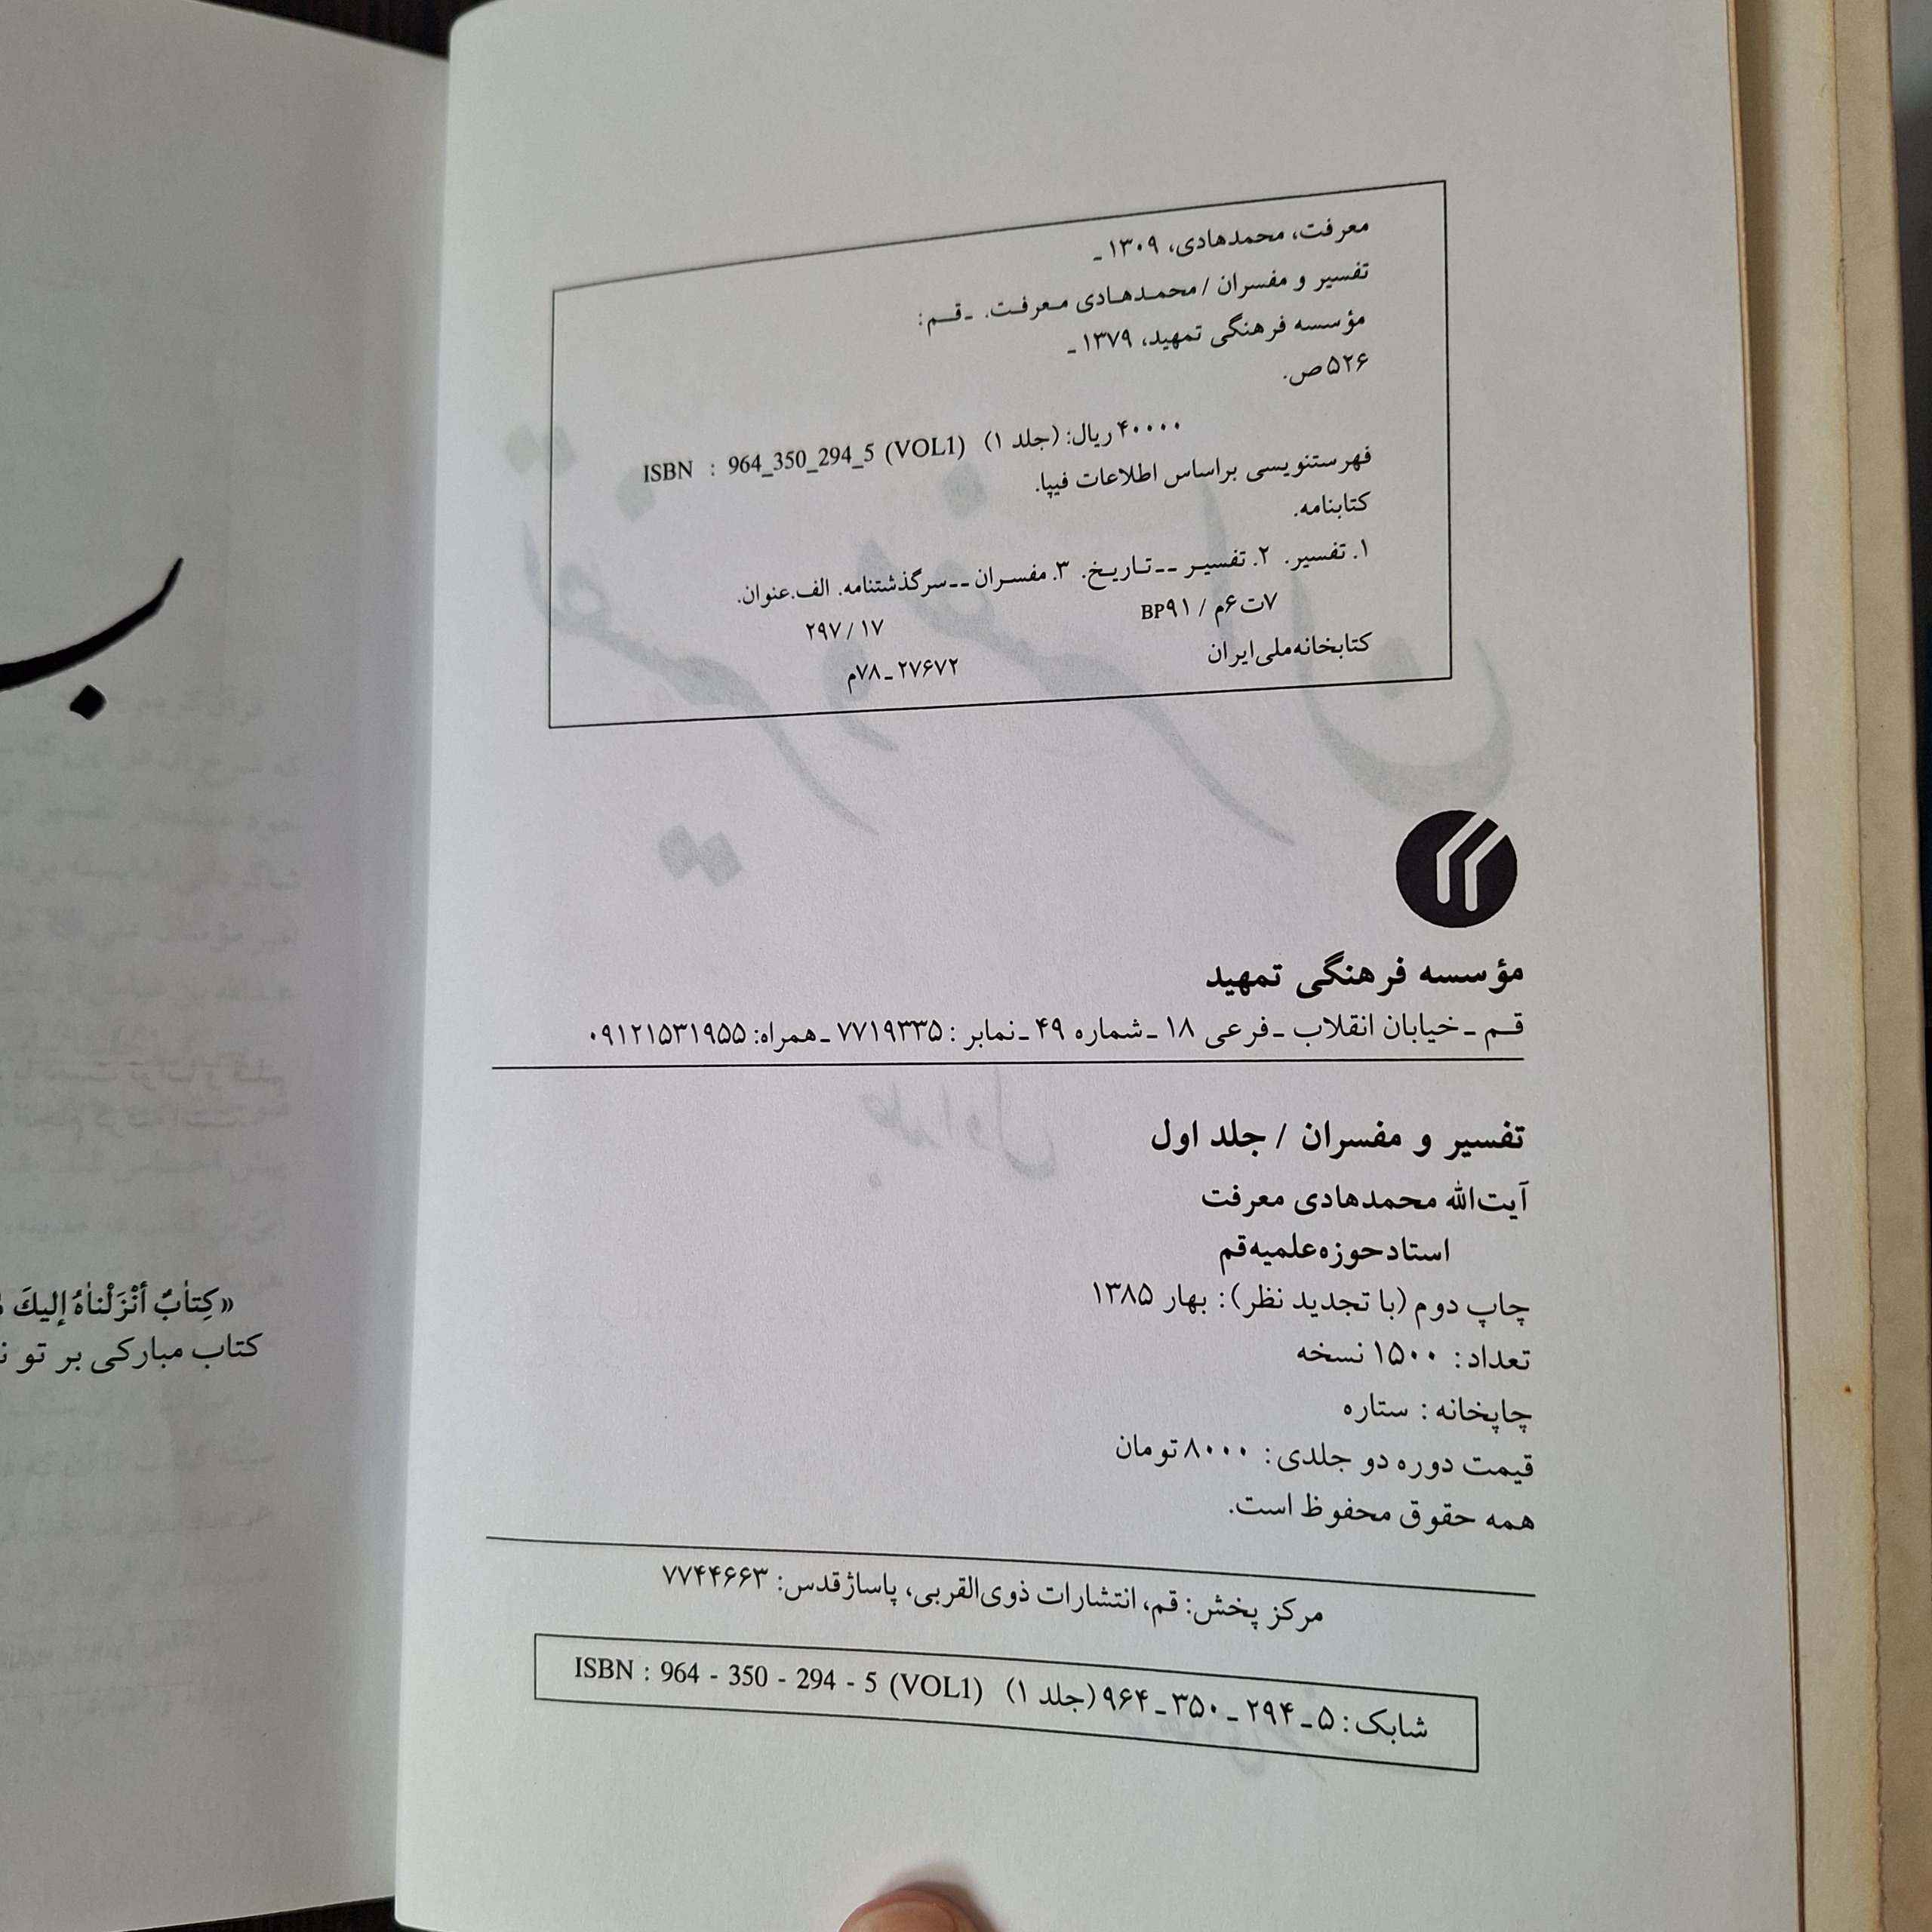 معرفت، محمدهادی، ۱۳۰۹ ـ
تفسیر و مفسران / محمدهادی معرفت. ـ قم:
مؤسسه فرهنگی تمهید، ۱۳۷۹ ـ
۵۲۶ ص.
۴۰۰۰۰ ریال: (جلد ۱) ISBN : 964_350_294_5 (VOL1)
فهرستنویسی براساس اطلاعات فیپا.
کتابنامه.
۱. تفسیر. ۲. تفسیر ــ تاریخ. ۳. مفسران ــ سرگذشتنامه. الف.عنوان.
۷ت۶م / BP۹۱ ۲۹۷/۱۷
کتابخانه‌ملی‌ایران ۲۷۶۷۲ ـ ۷۸م
مؤسسه فرهنگی تمهید
قم ـ خیابان انقلاب ـ فرعی ۱۸ ـ شماره ۴۹ ـ نمابر : ۷۷۱۹۳۳۵ ـ همراه: ۰۹۱۲۱۵۳۱۹۵۵
تفسیر و مفسران / جلد اول
آیت‌الله محمدهادی معرفت
استادحوزه‌علمیه‌قم
چاپ دوم (با تجدید نظر): بهار ۱۳۸۵
تعداد: ۱۵۰۰ نسخه
چاپخانه : ستاره
قیمت دوره دو جلدی: ۸۰۰۰ تومان
همه حقوق محفوظ است.
مرکز پخش: قم، انتشارات ذوی‌القربی، پاساژقدس: ۷۷۴۴۶۶۳
شابک: ۵ ـ ۲۹۴ ـ ۳۵۰ ـ ۹۶۴ (جلد ۱) ISBN : 964 - 350 - 294 - 5 (VOL1)
«کِتابٌ أنْزَلْناهُ إلیكَ
کتاب مبارکی بر تو